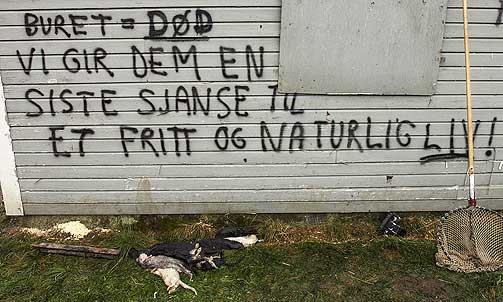 BURET = DØD
VI GIR DEM EN
SISTE SJANSE TIL
ET FRITT OG NATURLIG LIV!